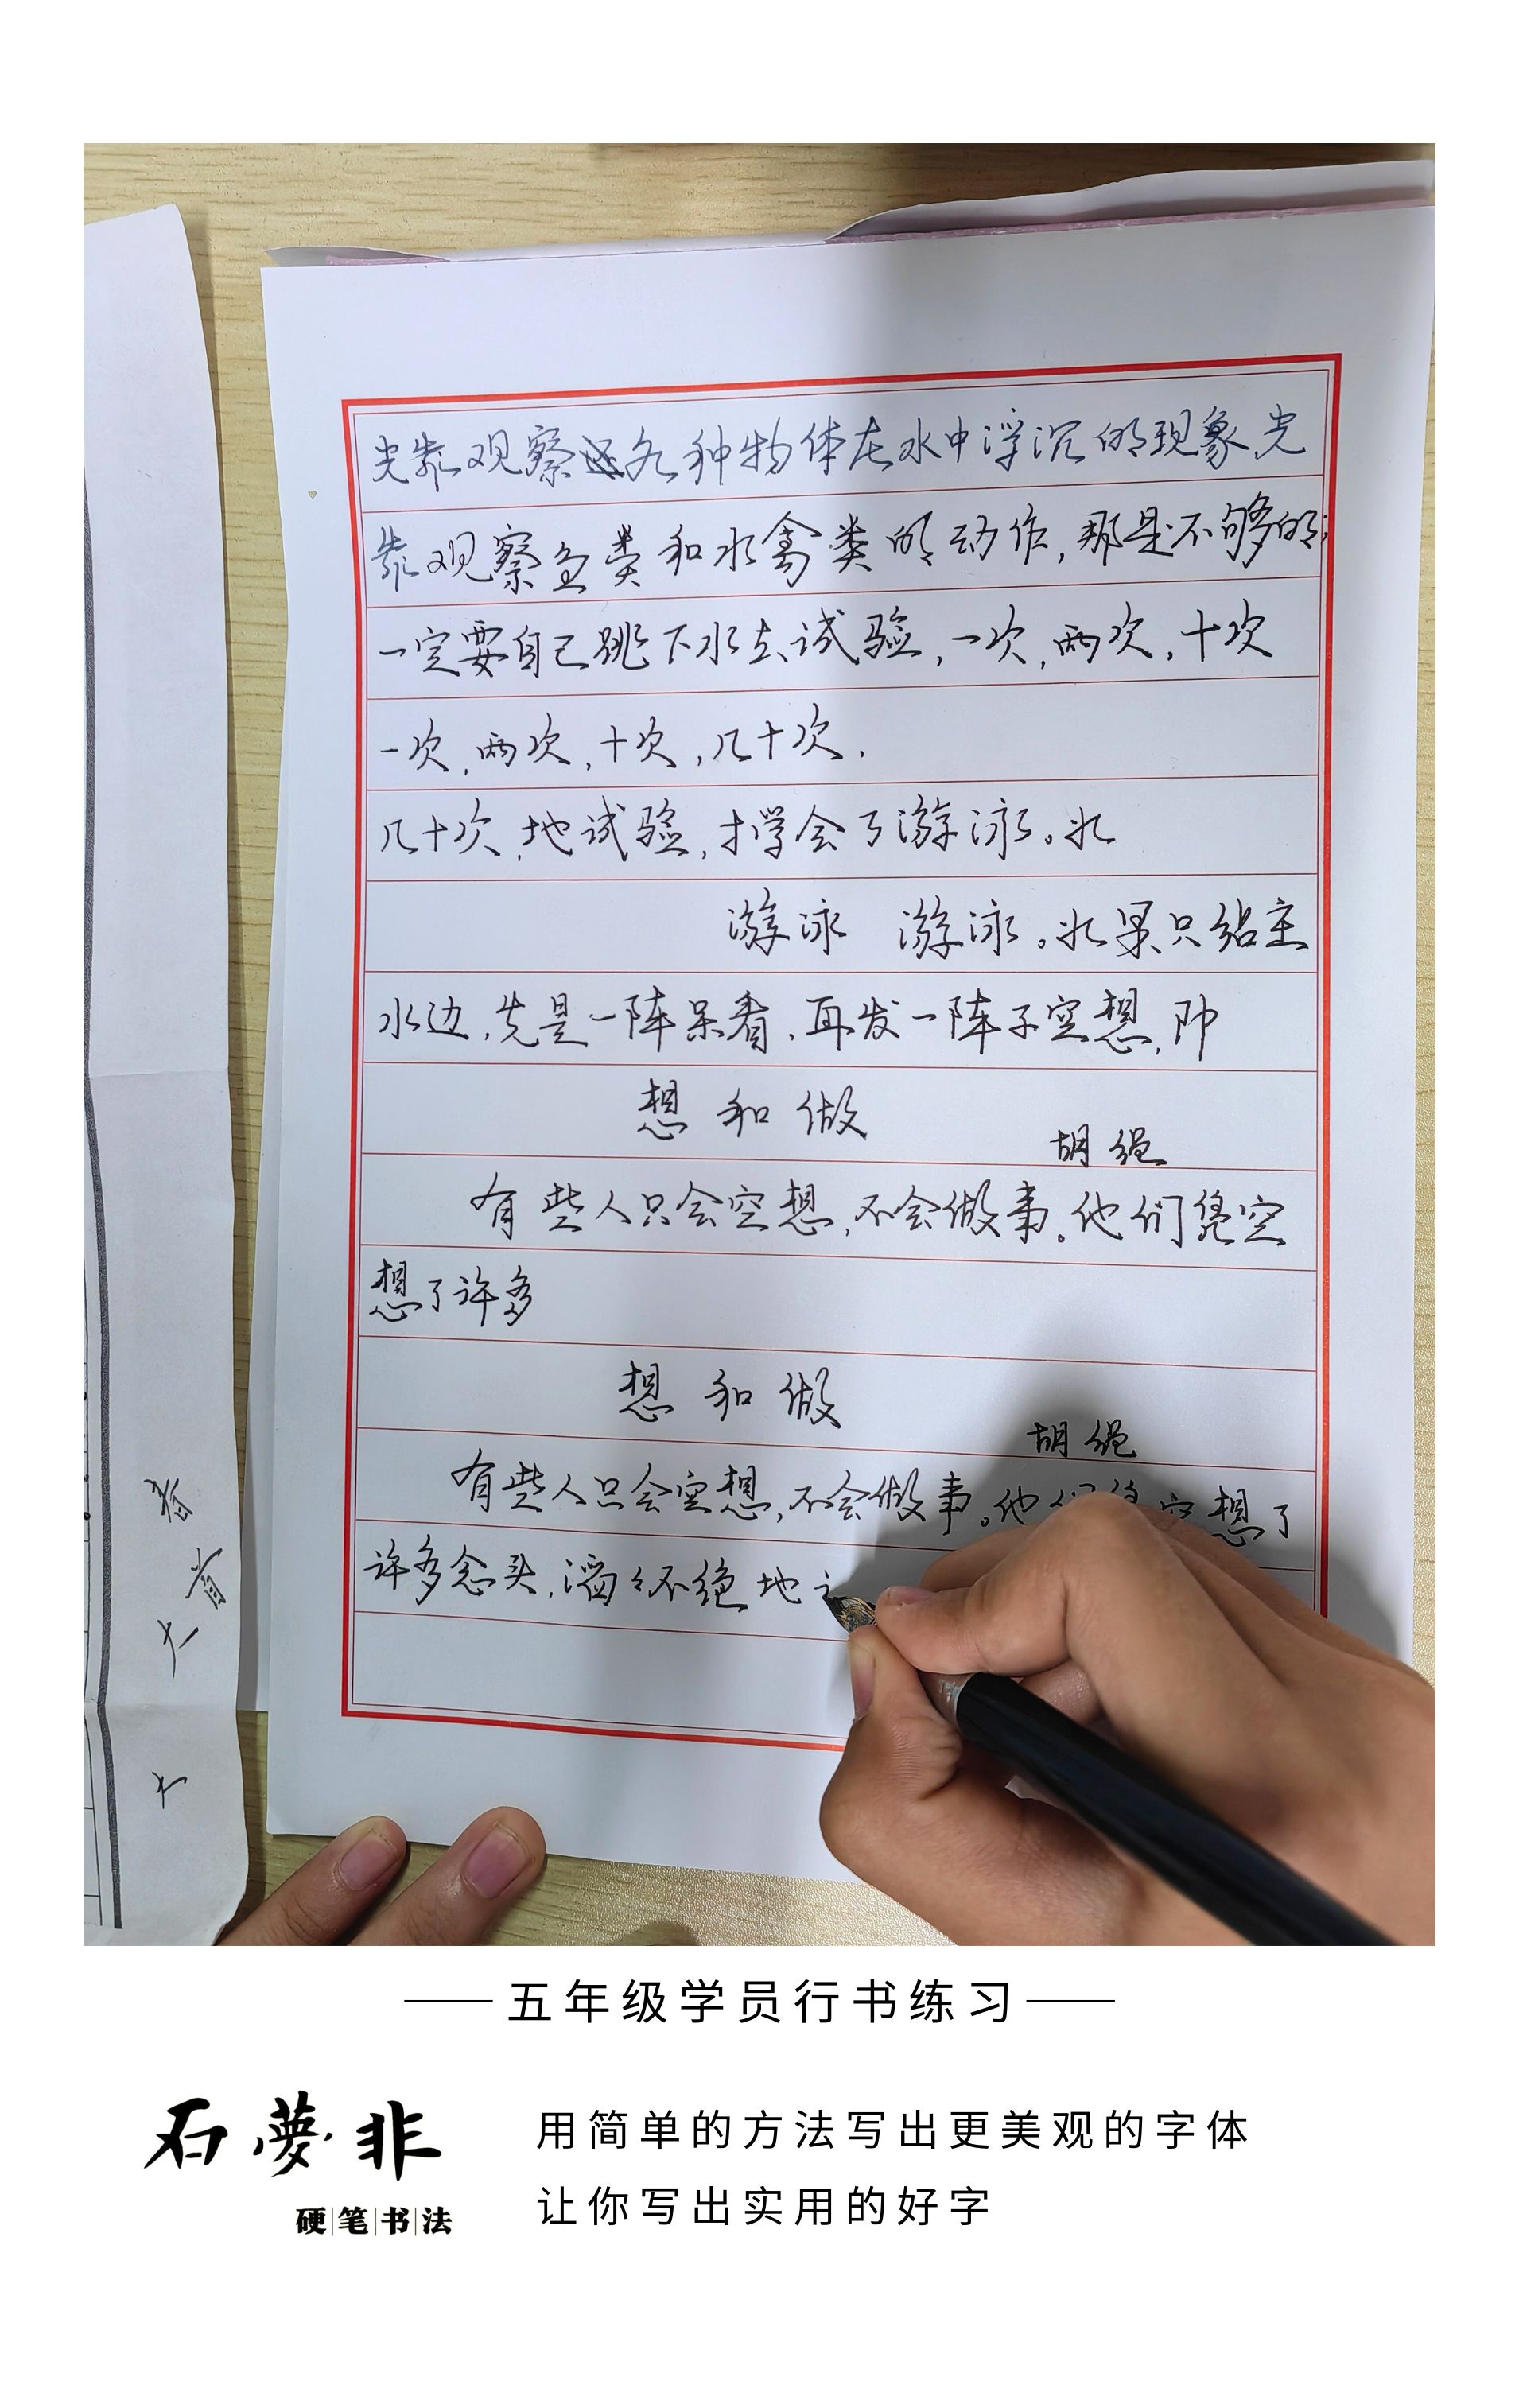 光靠观察各种物体在水中浮沉的现象,光
靠观察鱼类和水禽类的动作,那是不够的;
一定要自己跳下水去试验,一次,两次,十次
一次,两次,十次,几十次,
几十次,地试验,才学会了游泳。如
游泳 游泳。如果只站在
水边,先是一阵呆看,再发一阵子空想,即
想和做
胡绳
有些人只会空想,不会做事。他们凭空
想了许多
想和做
胡绳
有些人只会空想,不会做事。他们凭空想了
许多念头,滔々不绝地
春
大肯
大
五年级学员行书练习
石夢非
硬笔书法
用简单的方法写出更美观的字体
让你写出实用的好字